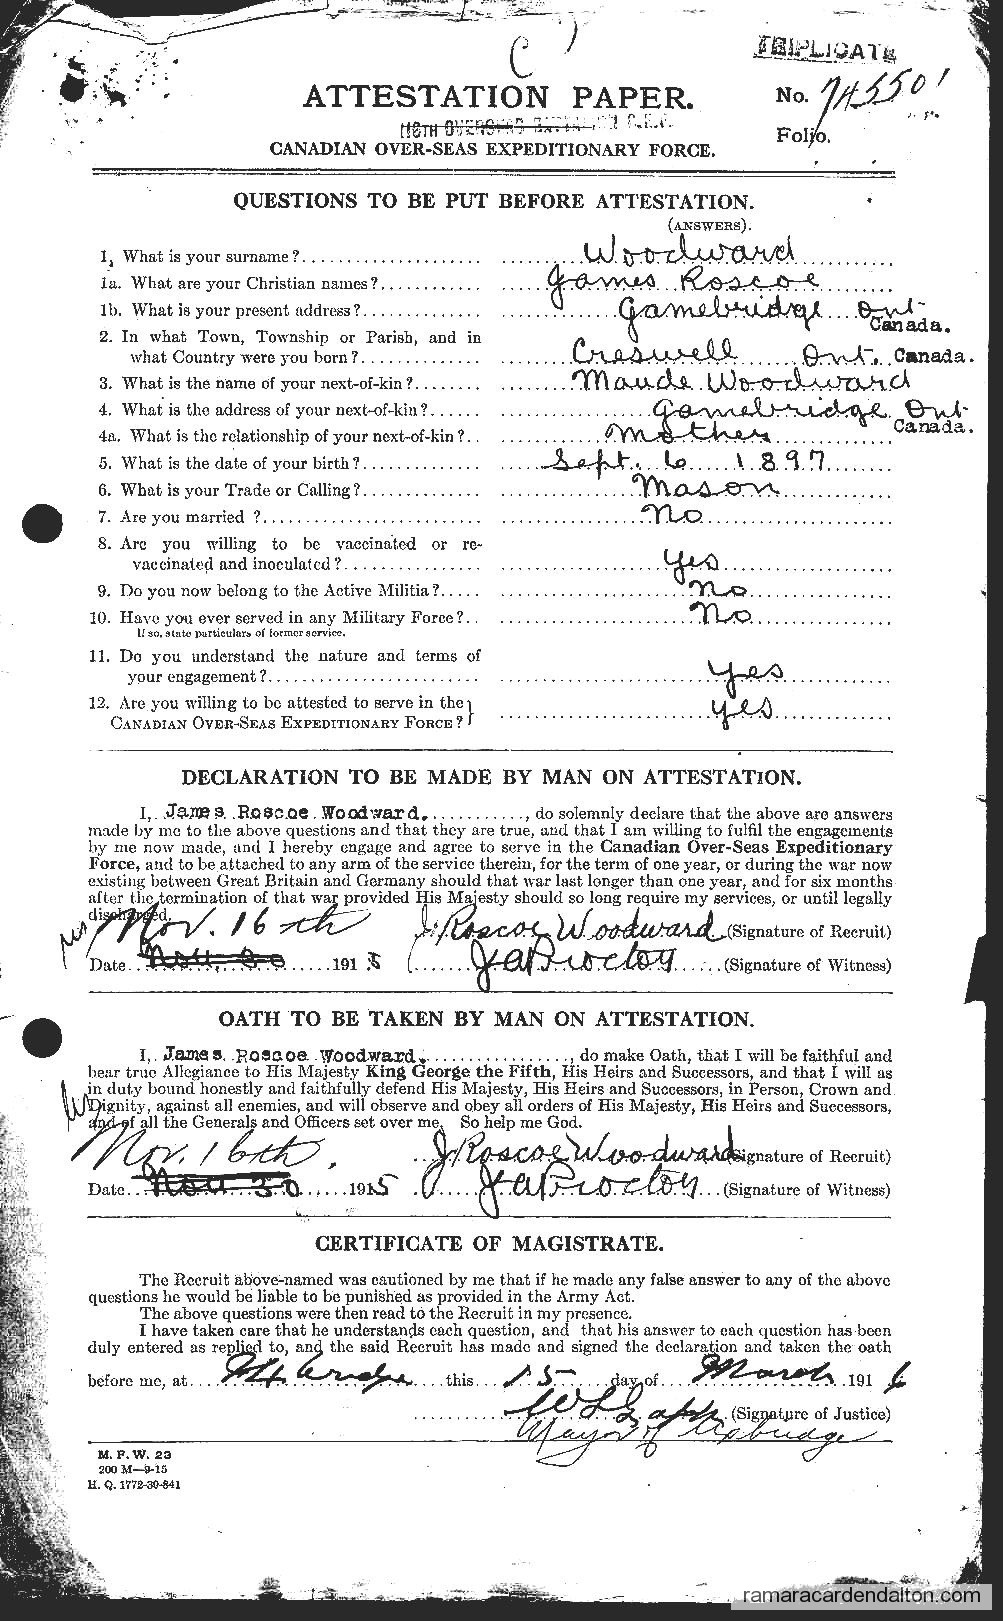 C
TRIPLICATE
ATTESTATION PAPER.
No. 745501
Folio.
118TH OVERSEAS BATTALION C.E.F.
CANADIAN OVER-SEAS EXPEDITIONARY FORCE.
QUESTIONS TO BE PUT BEFORE ATTESTATION.
(ANSWERS).
1. What is your surname?..................... Woodward
1a. What are your Christian names?............ James Roscoe
1b. What is your present address?.............. Gamebridge Ont Canada.
2. In what Town, Township or Parish, and in
what Country were you born?.............. Creswell Ont. Canada.
3. What is the name of your next-of-kin?........ Maude Woodward
4. What is the address of your next-of-kin?...... Gamebridge Ont Canada.
4a. What is the relationship of your next-of-kin?.. Mother
5. What is the date of your birth?.............. Sept. 6 1897
6. What is your Trade or Calling?.............. Mason
7. Are you married ?.......................... No
8. Are you willing to be vaccinated or re-
vaccinated and inoculated?................ Yes
9. Do you now belong to the Active Militia?..... No
10. Have you ever served in any Military Force?.. No
If so, state particulars of former service.
11. Do you understand the nature and terms of
your engagement?......................... Yes
12. Are you willing to be attested to serve in the
CANADIAN OVER-SEAS EXPEDITIONARY FORCE? yes
DECLARATION TO BE MADE BY MAN ON ATTESTATION.
I, James Roscoe Woodward............, do solemnly declare that the above are answers
made by me to the above questions and that they are true, and that I am willing to fulfil the engagements
by me now made, and I hereby engage and agree to serve in the Canadian Over-Seas Expeditionary
Force, and to be attached to any arm of the service therein, for the term of one year, or during the war now
existing between Great Britain and Germany should that war last longer than one year, and for six months
after the termination of that war provided His Majesty should so long require my services, or until legally
discharged.
Nov. 16th J. Roscoe Woodward (Signature of Recruit)
Date Nov. 30 1915 J A Proctor (Signature of Witness)
OATH TO BE TAKEN BY MAN ON ATTESTATION.
I, James Roscoe Woodward.................., do make Oath, that I will be faithful and
bear true Allegiance to His Majesty King George the Fifth, His Heirs and Successors, and that I will as
in duty bound honestly and faithfully defend His Majesty, His Heirs and Successors, in Person, Crown and
Dignity, against all enemies, and will observe and obey all orders of His Majesty, His Heirs and Successors,
and of all the Generals and Officers set over me. So help me God.
Nov. 16th. J Roscoe Woodward (Signature of Recruit)
Date Nov 30 1915 J A Proctor (Signature of Witness)
CERTIFICATE OF MAGISTRATE.
The Recruit above-named was cautioned by me that if he made any false answer to any of the above
questions he would be liable to be punished as provided in the Army Act.
The above questions were then read to the Recruit in my presence.
I have taken care that he understands each question, and that his answer to each question has been
duly entered as replied to, and the said Recruit has made and signed the declaration and taken the oath
before me, at this 15 day of March 1916
(Signature of Justice)
Mayor of Uxbridge
M. F. W. 23
200 M—9-15
H. Q. 1772-39-841
ramaracardendalton.com